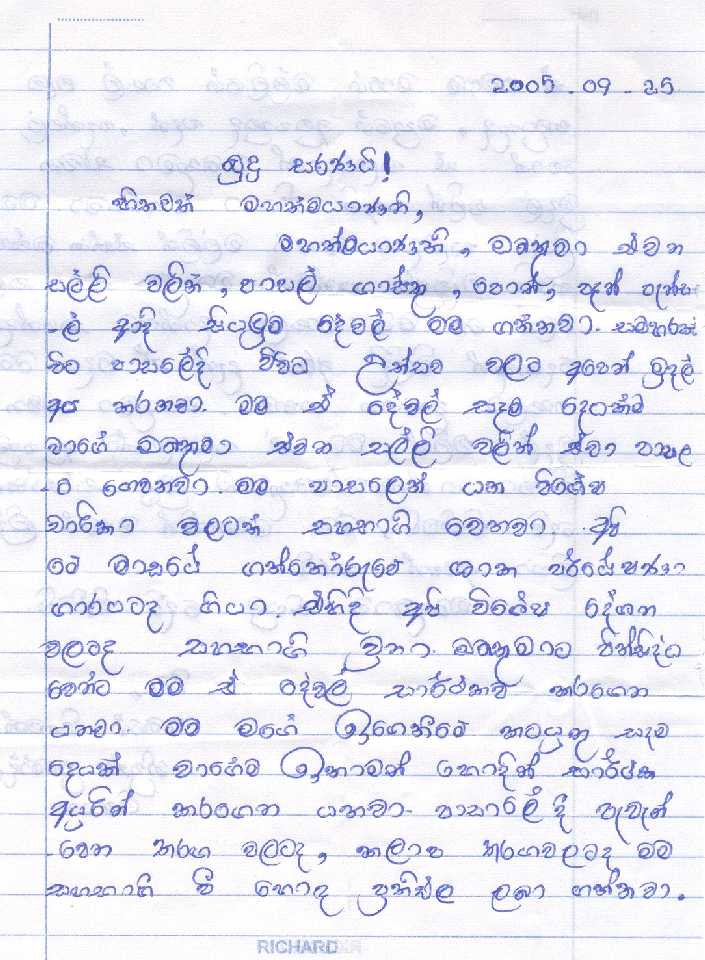 2005 - 09 - 25
බුදු සරණයි!
හිතවත් මහත්මයාණනි,
මහත්මයාණනි, ඔබතුමා එවන
සල්ලි වලින්, පාසල් ගාස්තු, පොත්, පෑන් පැන්ස
-ල් ආදි සියළුම දේවල් මම ගන්නවා. සමහරක්
විට පාසලේදි විවිධ උත්සව වලට අපෙන් මුදල්
අය කරනවා. මම ඒ දේවල් සෑම දෙයක්ම
වාගේ ඔබතුමා එවන සල්ලි වලින් එවා පාසල
-ට ගෙවනවා. මම පාසලෙන් යන විශේෂ
චාරිකා වලටත් සහභාගි වෙනවා. අපි
මේ මාසයේ ගන්නෝරුවේ ශාක පර්යේෂණා
ගාරයටද ගියා. එහිදි අපි විශේෂ දේශන
වලටද සහභාගි වුනා. ඔබතුමාට පින්සිද්ධ
වෙන්ට මම ඒ දේවල් සාර්ථකව කරගෙන
යනවා. මම මගේ ඉගෙනීමේ කටයුතු සෑම
දෙයක් වාගේම ඉතාමත් හොදින් සාර්ථක
අයුරින් කරගෙන යනවා. පාසාලේ දී පැවැත්
-වෙන තරග වලටද, කලාප තරගවලටද මම
සහභාගී වී හොඳ ප්‍රතිඵල ලබා ගන්නවා.
RICHARD